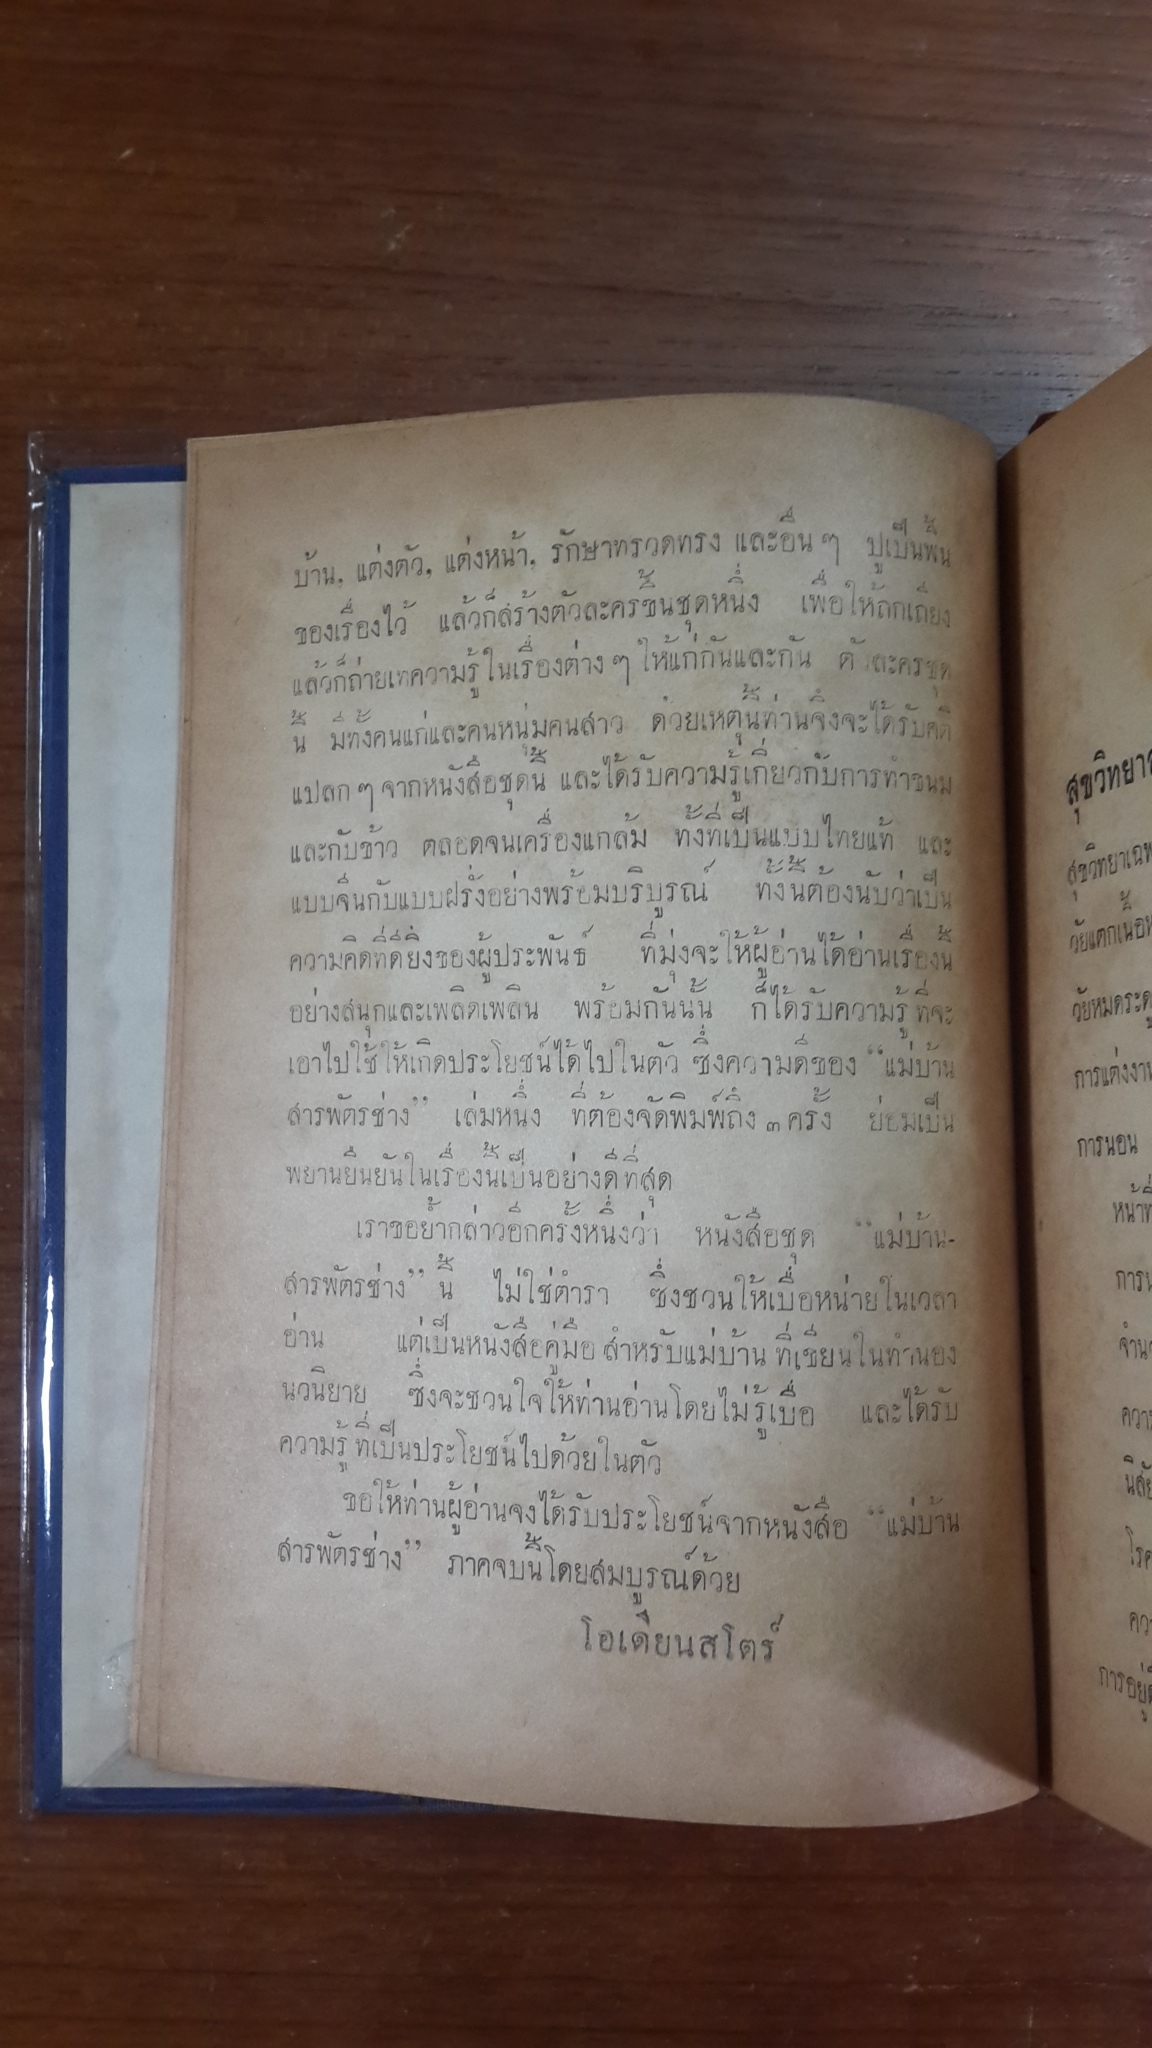 บ้าน, แต่งตัว, แต่งหน้า, รักษาทรวดทรง และอื่น ๆ ปูเป็นพื้น
ของเรื่องไว้ แล้วก็สร้างตัวละครขึ้นชุดหนึ่ง เพื่อให้ถกเถียง
แล้วก็ถ่ายเทความรู้ในเรื่องต่าง ๆ ให้แก่กันและกัน ตัวละครชุด
นี้ มีทั้งคนแก่และคนหนุ่มคนสาว ด้วยเหตุนี้ท่านจึงจะได้รับคติ
แปลก ๆ จากหนังสือชุดนี้ และได้รับความรู้เกี่ยวกับการทำขนม
และกับข้าว ตลอดจนเครื่องแกล้ม ทั้งที่เป็นแบบไทยแท้ และ
แบบจีนกับแบบฝรั่งอย่างพร้อมบริบูรณ์ ทั้งนี้ต้องนับว่าเป็น
ความคิดที่ดียิ่งของผู้ประพันธ์ ที่มุ่งจะให้ผู้อ่านได้อ่านเรื่องนี้
อย่างสนุกและเพลิดเพลิน พร้อมกันนั้น ก็ได้รับความรู้ที่จะ
เอาไปใช้ให้เกิดประโยชน์ได้ไปในตัว ซึ่งความดีของ “แม่บ้าน
สารพัตรช่าง” เล่มหนึ่ง ที่ต้องจัดพิมพ์ถึง ๓ ครั้ง ย่อมเป็น
พยานยืนยันในเรื่องนี้เป็นอย่างดีที่สุด
เราขอย้ำกล่าวอีกครั้งหนึ่งว่า หนังสือชุด “แม่บ้าน-
สารพัตรช่าง” นี้ ไม่ใช่ตำรา ซึ่งชวนให้เบื่อหน่ายในเวลา
อ่าน แต่เป็นหนังสือคู่มือ สำหรับแม่บ้าน ที่เขียนในทำนอง
นวนิยาย ซึ่งจะชวนใจให้ท่านอ่านโดยไม่รู้เบื่อ และได้รับ
ความรู้ ที่เป็นประโยชน์ไปด้วยในตัว
ขอให้ท่านผู้อ่านจงได้รับประโยชน์จากหนังสือ “แม่บ้าน
สารพัตรช่าง” ภาคจบนี้โดยสมบูรณ์ด้วย
โอเดียนสโตร์
การแต่งงาน
การนอน